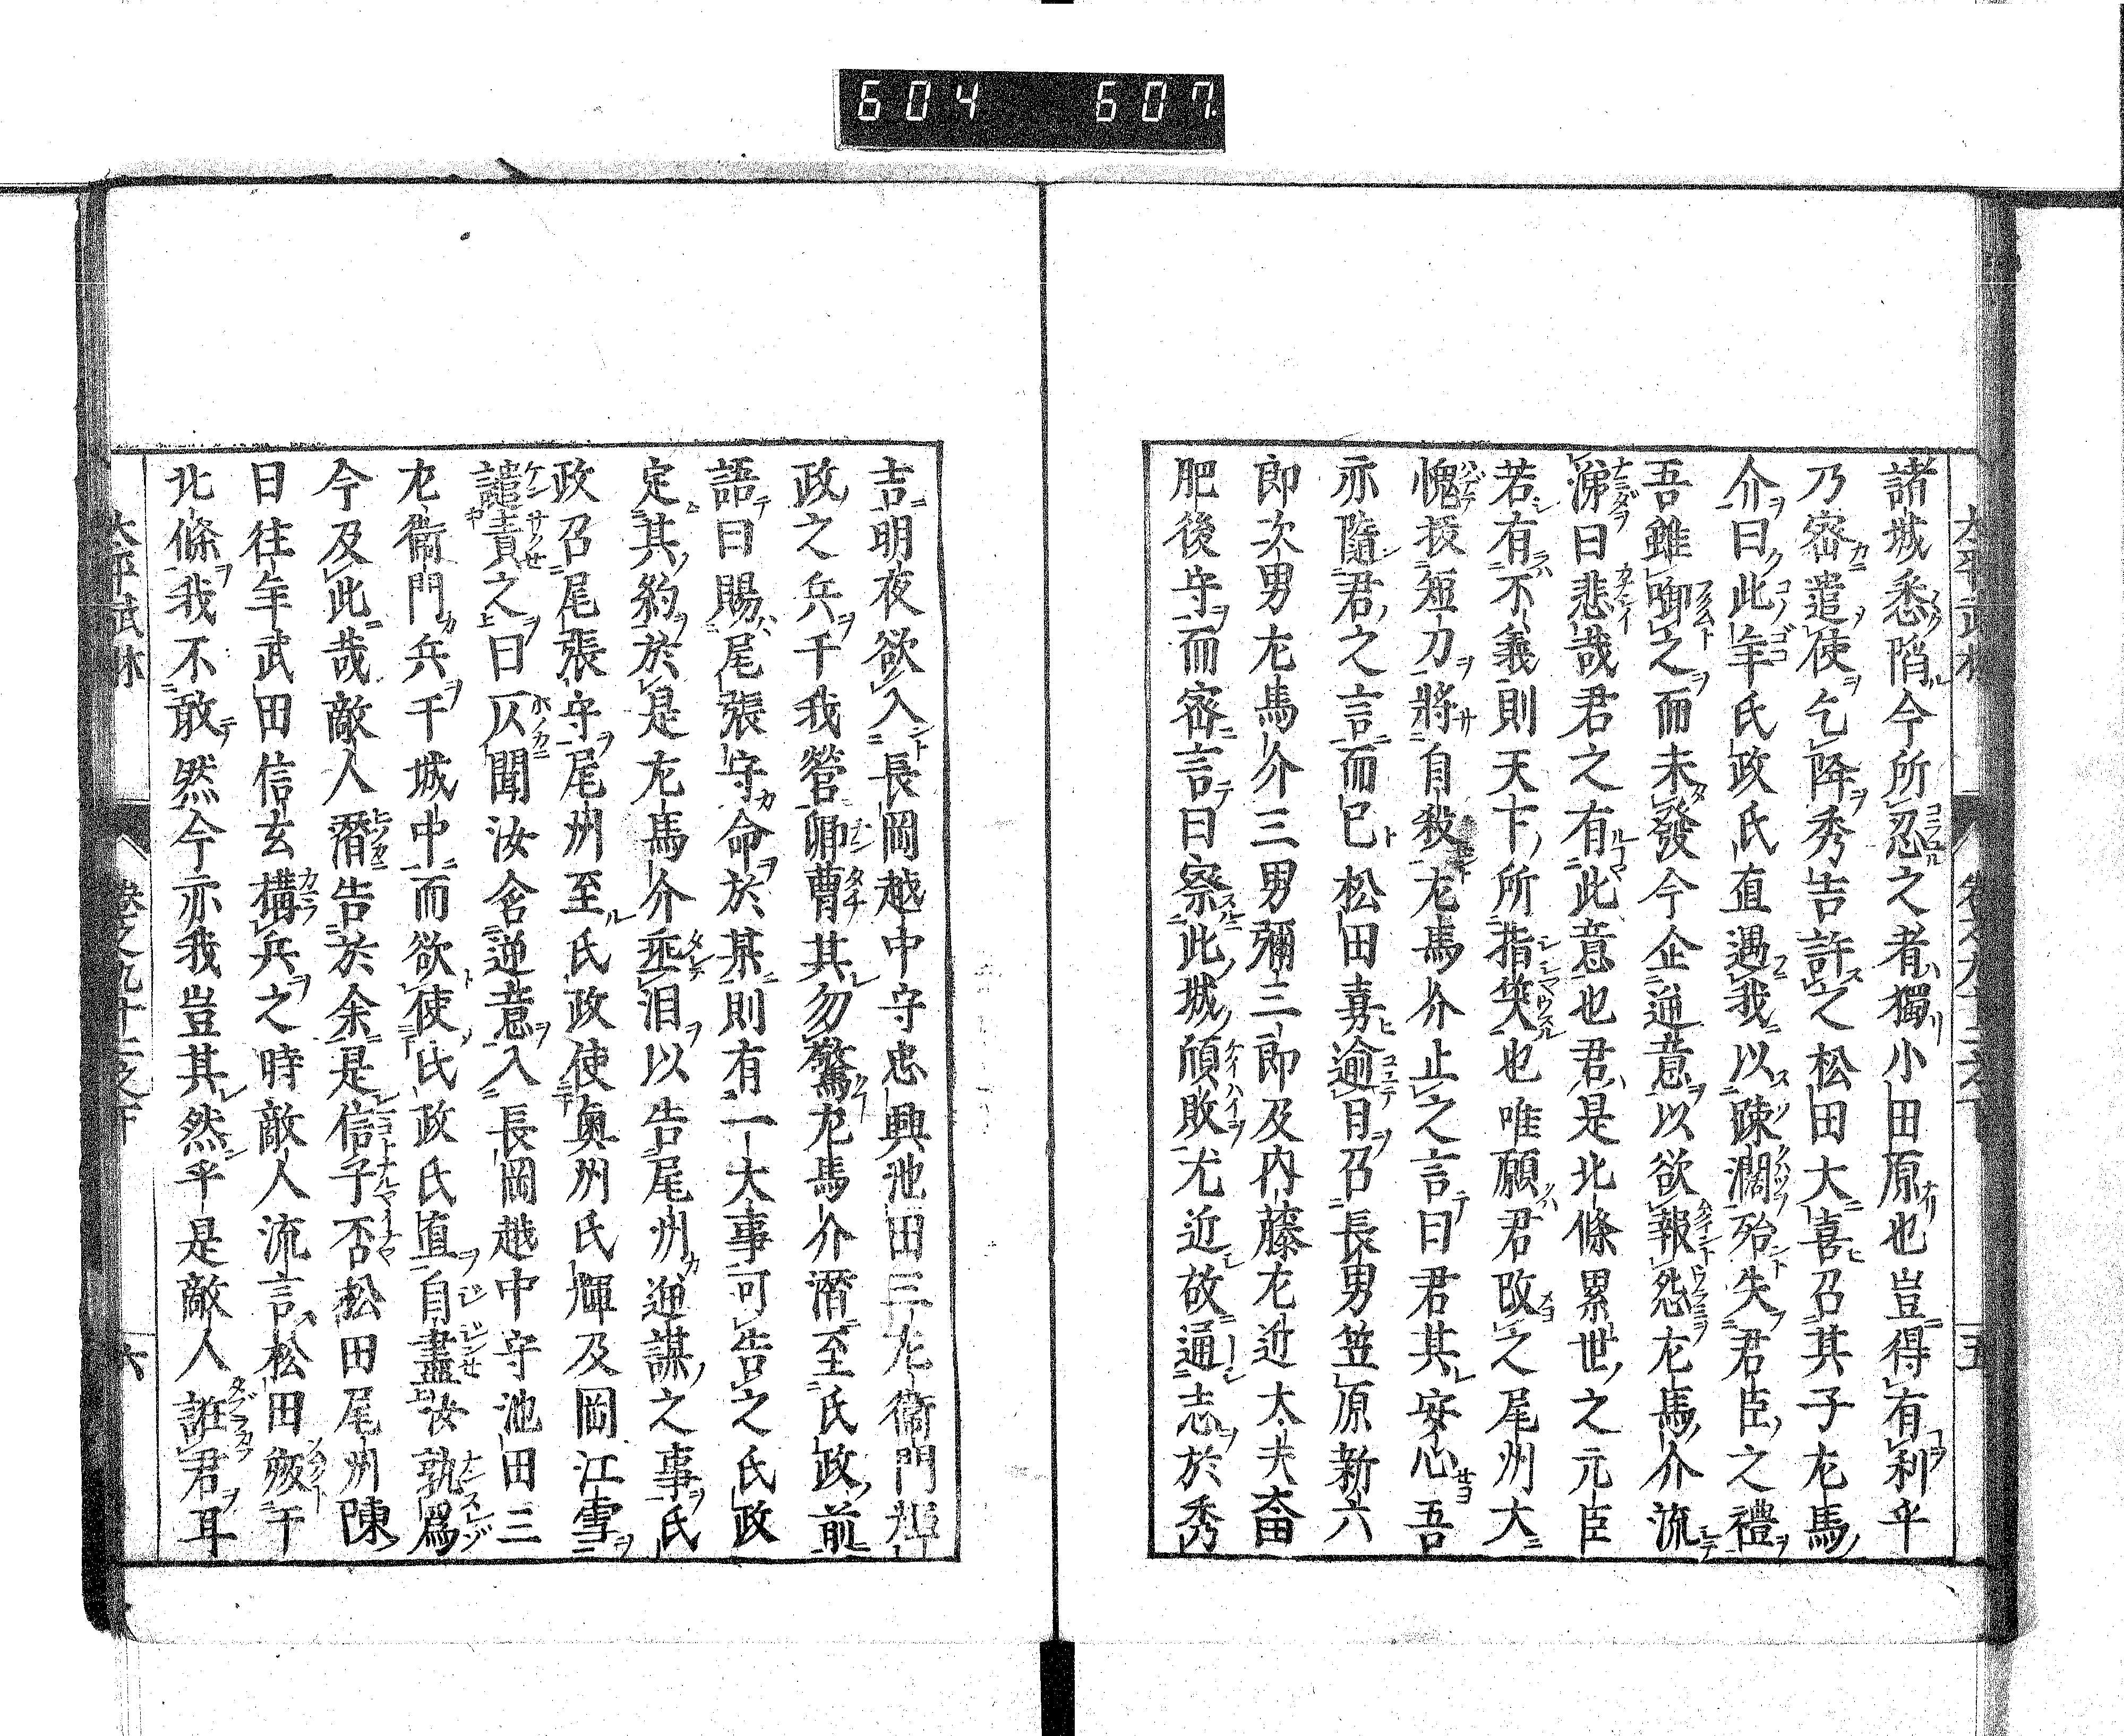 604 607
諸城悉陷今所忍之者獨小田原也豈得有利乎
乃密遣使乞降秀吉許之松田大喜召其子左馬
介曰此年氏政氏直遇我以疎濶殆失君臣之禮
吾雖啣之而未發今企逆意以欲報怨左馬介流
涕曰悲哉君之有此意也君是北條累世之元臣
若有不義則天下所指笑也唯願君改之尾州大
愧拔短刀將自殺左馬介止之言曰君其安心吾
亦隨君之言而已松田喜逾日召長男笠原新六
郎次男左馬介三男彌三郎及内藤左近大夫畨
肥後守而密言曰察此城頎敗尤近故通志於秀
吉明夜欲入長岡越中守忠興池田三左衞門輝
政之兵千我營卿曹其勿驚左馬介潛至氏政前
語曰賜尾張守命於某則有一大事可告之氏政
定其約於是左馬介垂泪以告尾州逆謀之事氏
政召尾張守尾州至氏政使奧州氏輝及岡江雪
譴責之曰仄聞汝含逆意入長岡越中守池田三
左衞門兵千城中而欲使氏政氏直自盡汝孰爲
今及此哉敵人潛告於余是信乎否松田尾州陳
曰往年武田信玄構兵之時敵人流言松田叛千
北條我不敢然今亦我豈其然乎是敵人誑君耳
六